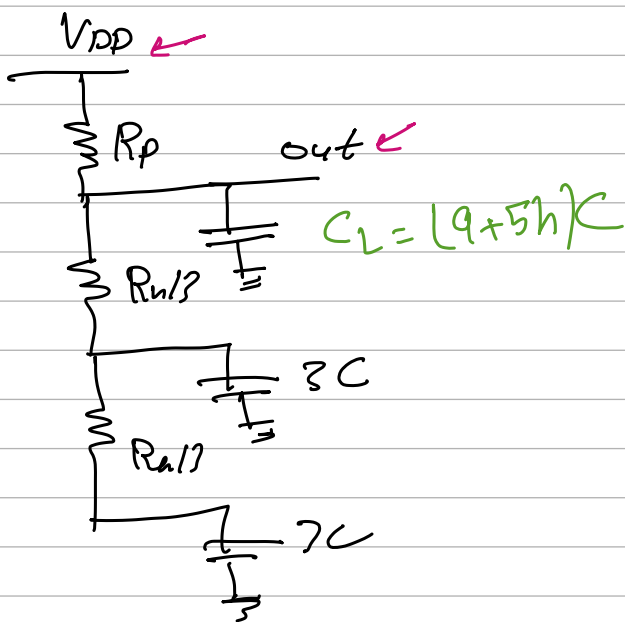 VDD
Rp
out
CL = (9+5h)C
Rn/3
3C
Rn/3
3C